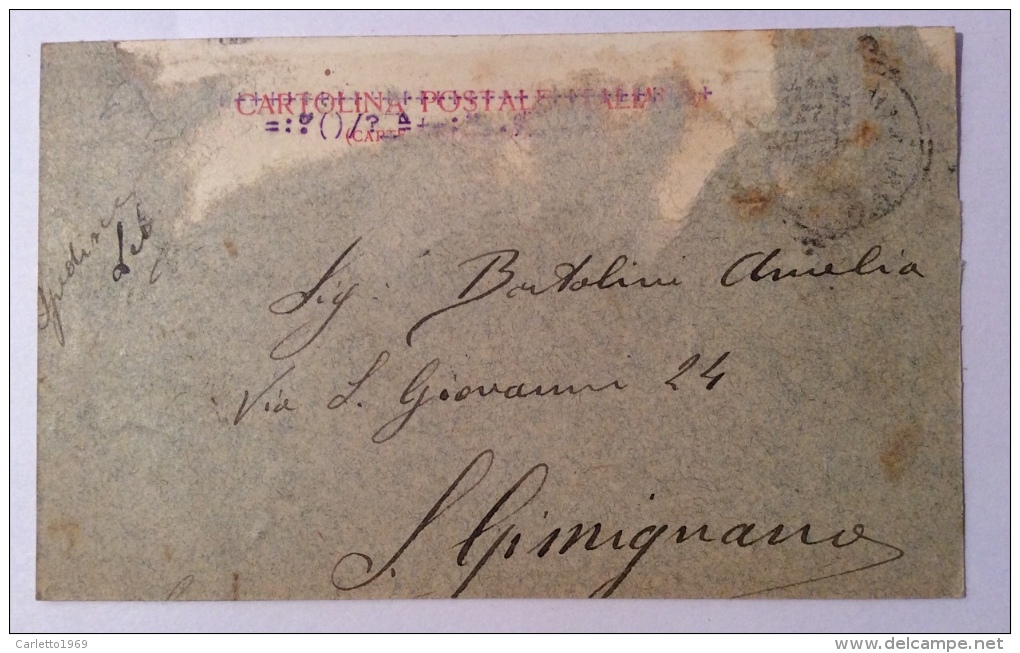 CARTOLINA POSTALE ITALIANA
=:%()/?_
(CARTE
Spedisce
Sig. Bartolini Amelia
Via S. Giovanni 24
S. Gimignano
Carletto1969
www.delcampe.net